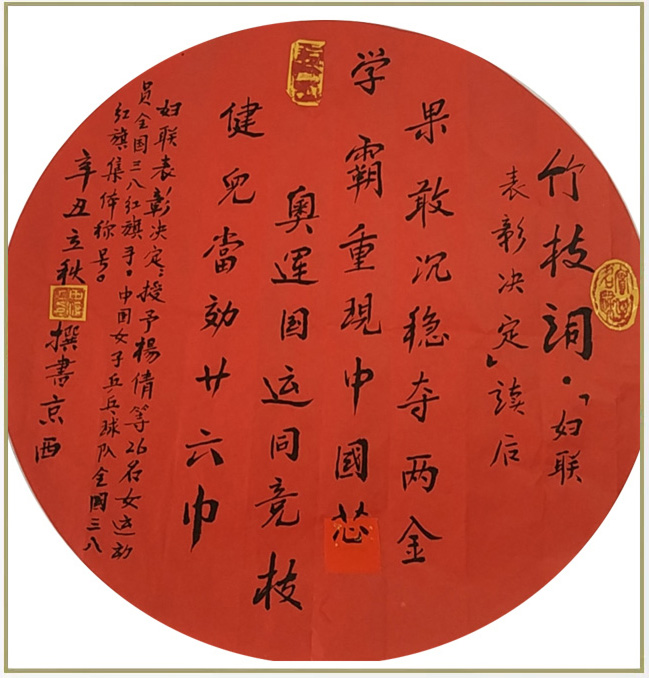 竹技詞·「妇联
表彰决定」读后
果敢沉稳夺两金
学霸重現中國芯
奥運国运同竞技
健兒當効廿六巾
妇联表彰决定:授予楊倩等26名女运动
员全国三八红旗手。中国女子乒乓球队全国三八
红旗集体称号。
辛丑立秋
撰書京西